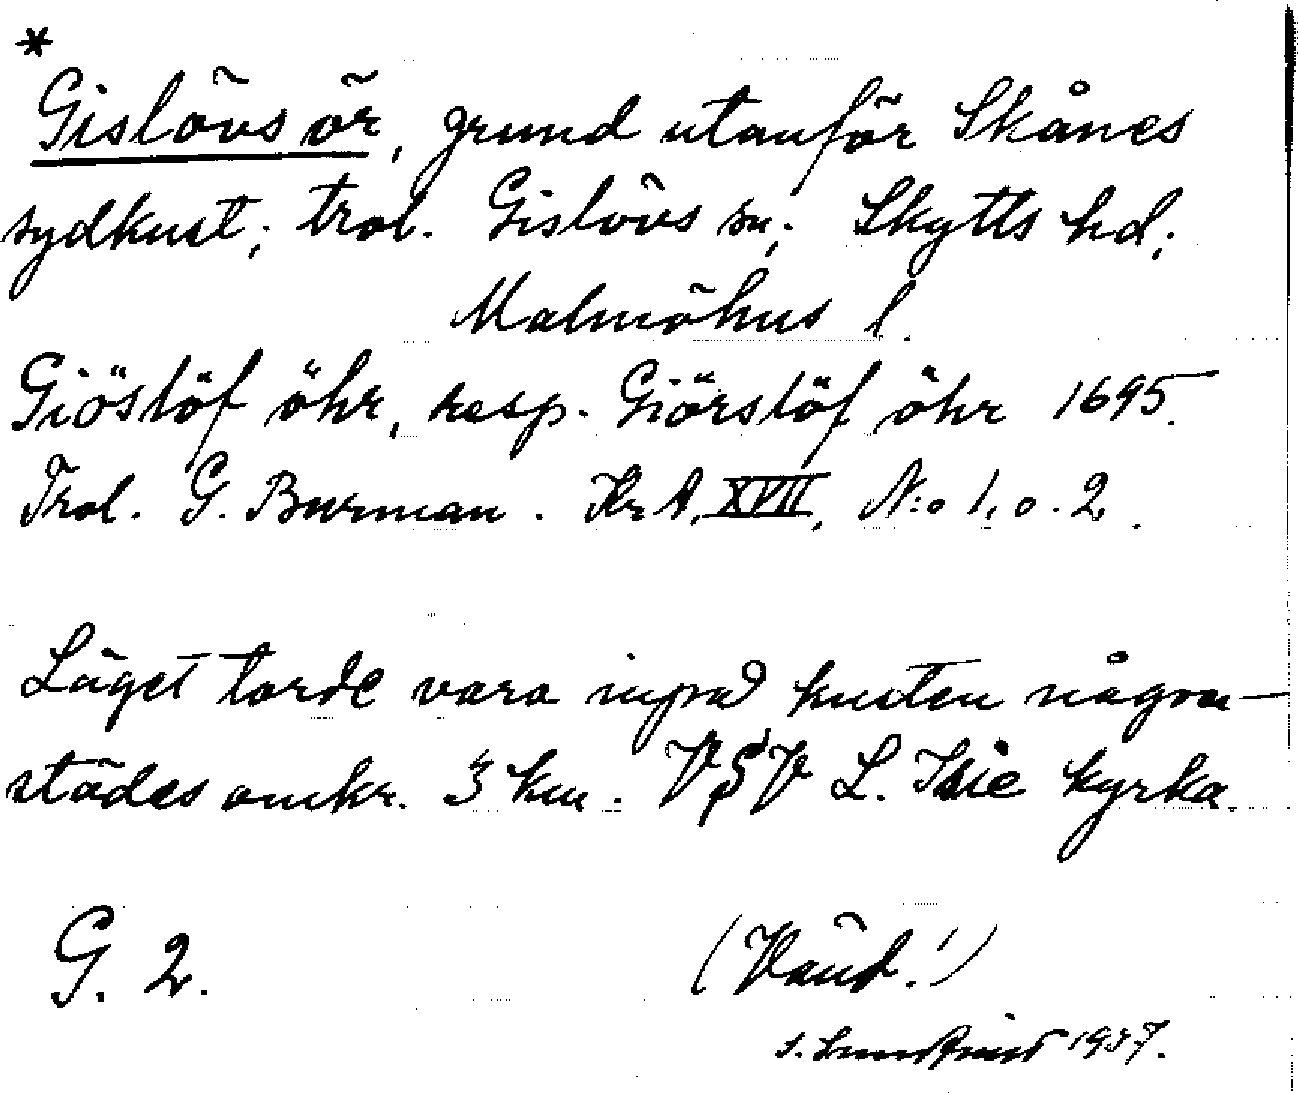 *
Gislövs ör, grund utanför Skånes
sydkust; trol. Gislövs sn; Skytts hd;
Malmöhus l.
Giöslöf öhr, resp. Giörslöf öhr 1695.
Trol. G. Burman. Kr A, XVII, N:o 1, o. 2.
Läget torde vara inpå kusten någon-
städes omkr. 3 km. VSV L. Isie kyrka.
G. 2.
(Vänd!)